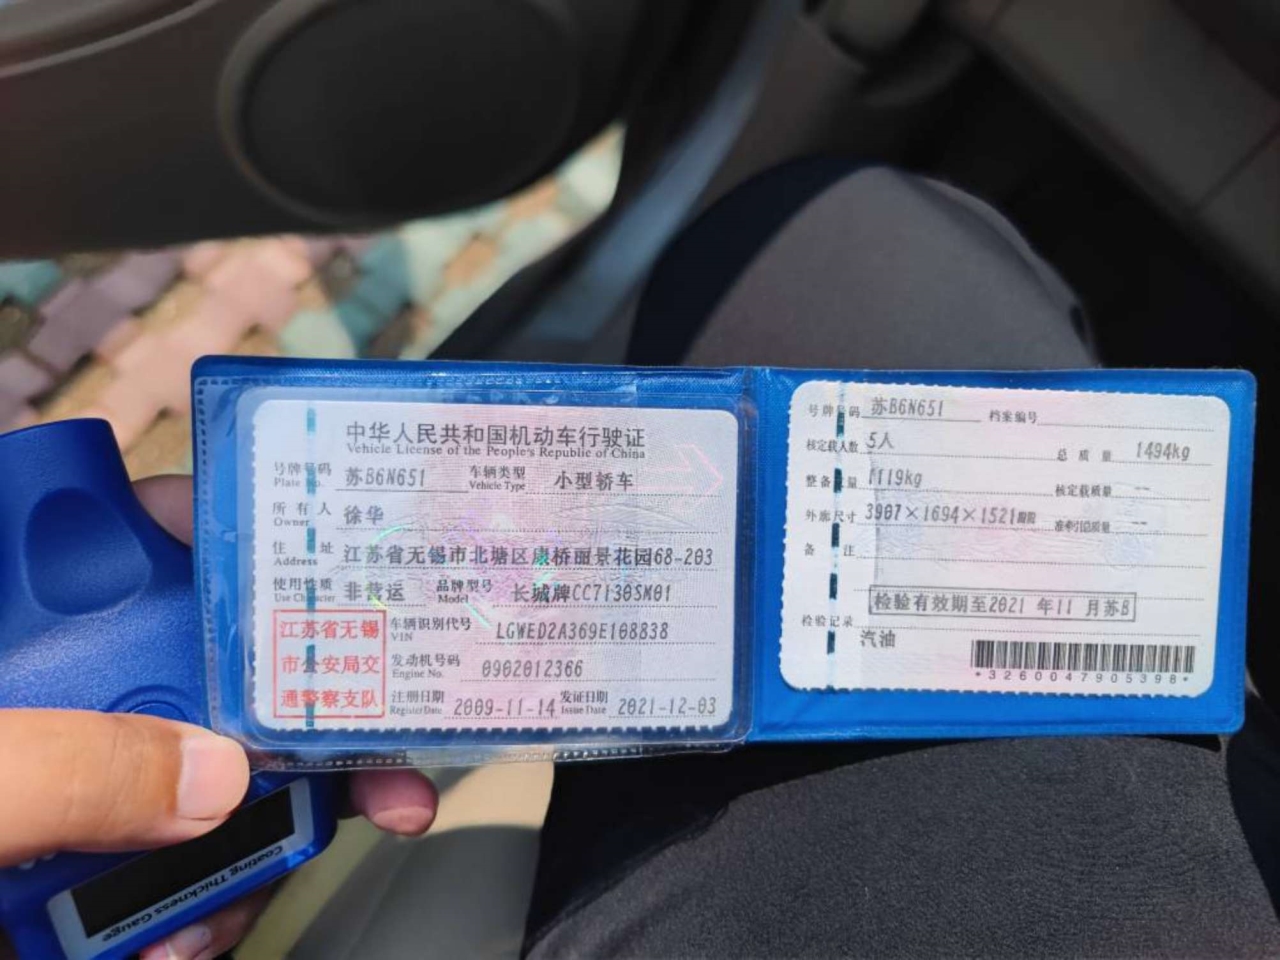 中华人民共和国机动车行驶证
Vehicle License of the People's Republic of China
号牌号码 苏B6N651 车辆类型 小型轿车
Plate No. Vehicle Type
所有人 徐华
Owner
住址 江苏省无锡市北塘区康桥丽景花园168-203
Address
使用性质 非营运 品牌型号 长城牌CC7130SM01
Use Character Model
江苏省无锡
市公安局交
通警察支队
车辆识别代号 LGWED2A369E108838
VIN
发动机号码 0902012366
Engine No.
注册日期 2009-11-14 发证日期 2021-12-03
Register Date Issue Date
号牌号码 苏B6N651 档案编号
核定载人数 5人 总质量 1494kg
整备质量 1119kg 核定载质量 --
外廓尺寸 3907×1694×1521mm 准牵引总质量 --
备注
检验有效期至2021 年11 月苏B
检验记录
汽油
*3260047905398*
Coating Thickness Gauge